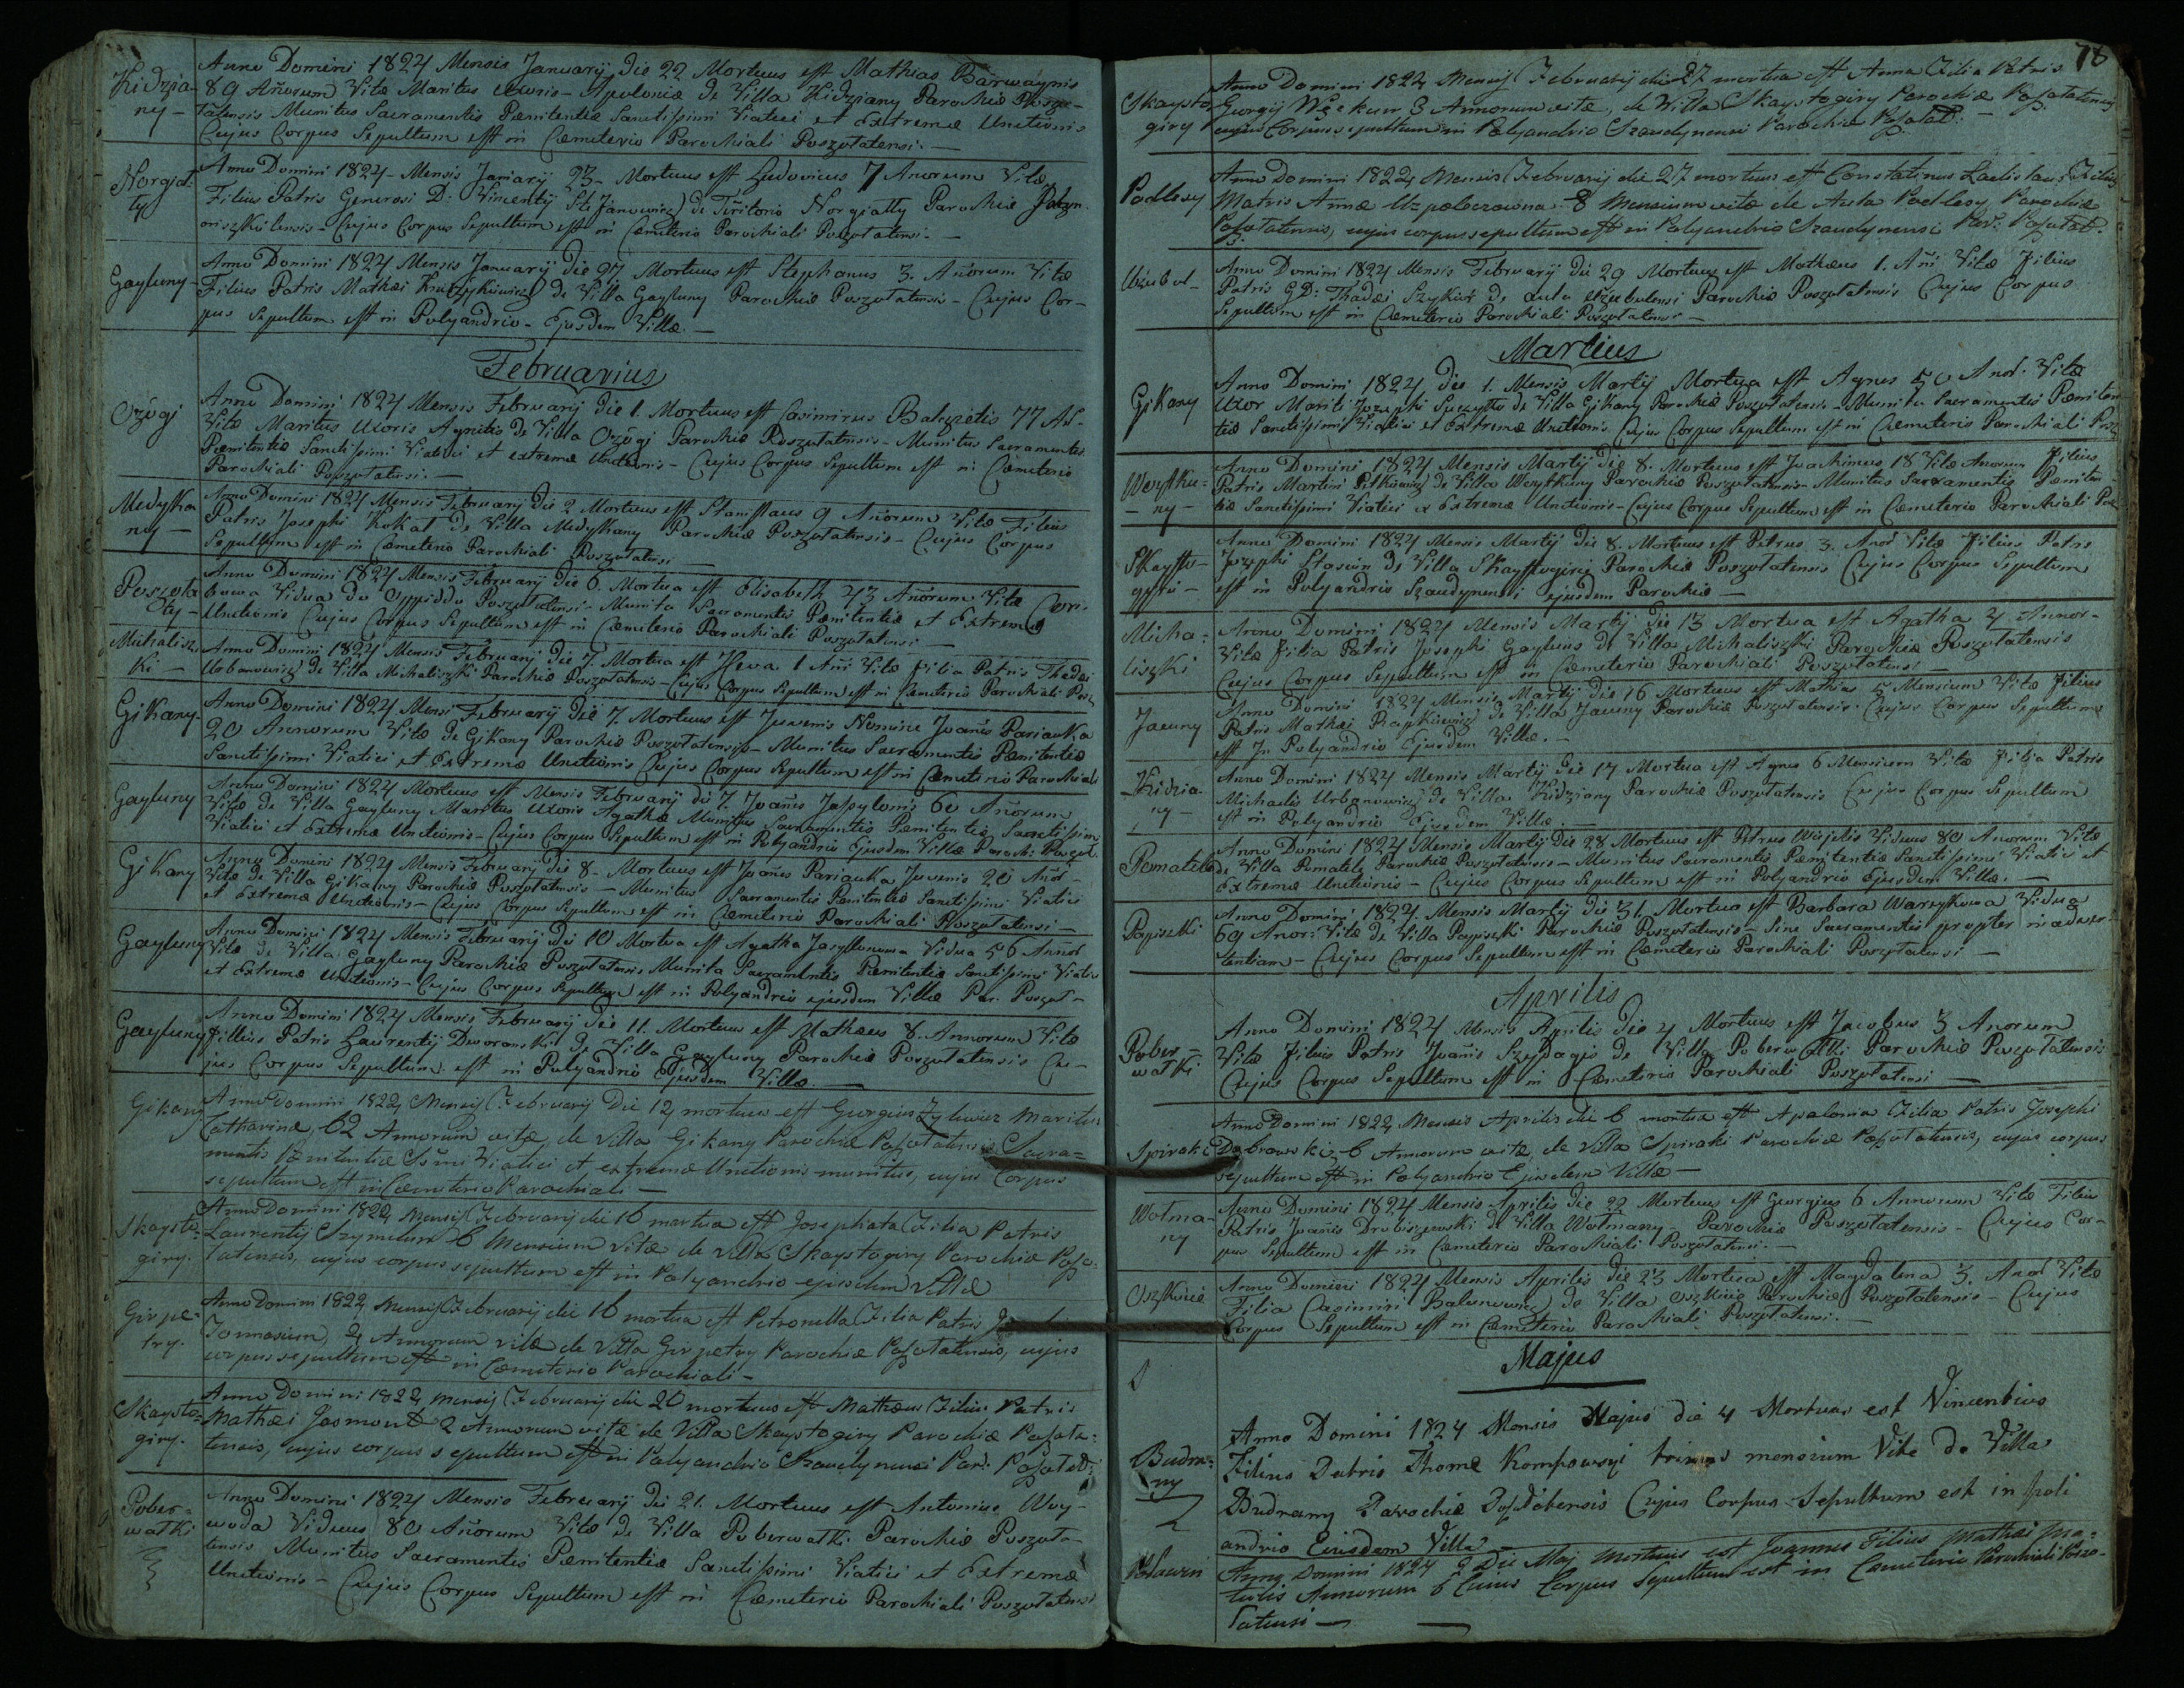 Kidzia-
ny -
Anno Domini 1824 Mensis Januarij die 22 Mortuus est Mathias Barwaynis
89 Añorum Vitæ Maritus Uxoris Apoloniæ de Villa Kidziany Parochiæ Poszo-
łatensis Munitus Sacramentis Pænitentiæ Sanctissimi Viatici et Extremæ Unctionis
Cujus Corpus Sepultum est in Cæmeterio Parochiali Poszołatensi. —
Norgiał-
ty
Anno Domini 1824 - Mensis Janiarij 23 - Mortuus est Ludovicus 7 Anorum Vitæ
Filius Patris Generosi D: Vincentij Janowicz de Territorio Norgiałty Parochiæ
Cujus Corpus Sepultum est in Cæmeterio Parochiali Poszołatensi. —
Gayluny -
Anno Domini 1824 Mensis Januarij Die 27 Mortuus est Stephanus 3. Añorum Vitæ
Filius Patris Mathæi de Villa Gayluny Parochiæ Poszołatensis - Cujus Cor-
pus Sepultum est in Polyandrio - Ejusdem Villæ. —
Februarius
Ożogi
Anno Domini 1824 Mensis Februarij Die 1. Mortuus est Casimirus 77 An-
Vitæ Maritus Uxoris Agnetis de Villa Ożogi Parochiæ Poszołatensis - Munitus Sacramentis
Pænitentiæ Sanctissimi Viatici et extremæ Unctionis - Cujus Corpus Sepultum est in Cæmeterio
Parochiali Poszołatensi. —
Medyka
ny -
Anno Domini 1824 Mensis Februarij Die 2 Mortuus est Stanislaus 9 Añorum Vitæ Filius
Patris Josephi Kokat de Villa Medykany Parochiæ Poszołatensis - Cujus Corpus
Sepultum est in Cæmeterio Parochiali Poszołatensi —
Poszoła
ty -
Anno Domini 1824 Mensis Februarij Die 6. Mortua est Elisabeth 43 Añorum Vitæ
Vidua de Oppiddo Poszołatensi - Munita Sacramentis Pænitentiæ et Extremæ
Unctionis Cujus Corpus Sepultum est in Cæmeterio Parochiali Poszołatensi
Michalisz-
ki -
Anno Domini 1824 Mensis Februarij Die 7. Mortua est Heva 1 Añi Vitæ Filia Patris Thadæi
Urbanowicz de Villa Michaliszki Parochiæ Poszołatensis - Cujus Corpus Sepultum est in Cæmeterio Parochiali Posz
Gikany -
Anno Domini 1824 Mensi Februarij Die 7. Mortuus est Juvenis Nomine Joañes Pariauka
20 Annorum Vitæ de Gikany Parochiæ Poszołatensis - Munitus Sacramentis Pænitentiæ
Sanctissimi Viatici et Extremæ Unctionis Cujus Corpus Sepultum est in Cæmeterio Parochiali
Gayluny
Anno Domini 1824 Mortuus est Mensis Februarij die 7. Joañes Jasylonis 60 Añorum
Vitæ de Villa Gayluny Maritus Uxoris Agathæ Munitus Sacramentis Pænitentiæ Sanctissimi
Viatici et Extremæ Unctionis - Cujus Corpus Sepultum est in Polyandrio Ejusdem Villæ Paroch: Poszoł.
Gikany
Anno Domini 1824 Mensis Februarij Die 8 - Mortuus est Joañes Pariauka Juvenis 20 Añor -
Vitæ de Villa Gikany Parochiæ Poszołatensis - Munitus Sacramentis Pænitentiæ Sanctissimi Viatici
et Extremæ Unctionis - Cujus Corpus Sepultum est in Cæmeterio Parochiali Poszołatensi -
Gayluny
Anno Domini 1824 Mensis Februarij Die 10 Mortua est Agatha Jasylonowa Vidua 56 Añor
Vitæ de Villa Gayluny Parochiæ Poszołatensis Munita Sacramentis Pænitentiæ Sanctissimi Viatici
et Extremæ Unctionis - Cujus Corpus Sepultum est in Polyandrio ejusdem Villæ Par. Poszoł -
Gayluny
Anno Domini 1824 Mensis Februarij Die 11. Mortuus est Mathæus 8. Annorum Vitæ
Filius Patris Laurentij Dworanski de Villa Gayluny Parochiæ Poszołatensis Cu-
jus Corpus Sepultum est in Polyandrio Ejusdem Villæ. —
Gikany
Anno Domini 1824 Mensij Februarij Die 14 mortuus est Georgius Maritus
Catharinæ, 62 Annorum vitæ, de Villa Gikany Parochiæ Poszołatensis Sacra=
mentis Pænitentiæ Ssmi Viatici et extremæ Unctionis munitus, cujus Corpus
sepultum est in Cæmeterio Parochiali —
Skaysto-
giry.
Anno Domini 1824 Mensij Februarij die 16 mortua est Josephata Filia Patris
Laurentij 6 Mensium Vitæ de Villa Skaystogiry Parochiæ Poszo-
łatensis, cujus corpus sepultum est in Polyandrio ejusdem Villæ
Girpe-
try.
Anno Domini 1824 Mensij Februarij die 16 mortua est Petronella Filia Patris
4 Annorum vitæ de Villa Girpetry Parochiæ Poszołatensis, cujus
corpus sepultum est in Cæmeterio Parochiali -
Skaysto-
giry.
Anno Domini 1824 Mensij Februarij die 20 mortuus est Mathæus Filius Patris
Mathæi Jasmont 2 Annorum vitæ de Villa Skaystogiry Parochiæ Poszoła-
tensis, cujus corpus sepultum est in Polyandrio Szaudynensi Par: Poszołat:
Pober-
watki
Anno Domini 1824 Mensis Februarij Die 21. Mortuus est Antonius Woy-
woda Viduus 80 Añorum Vitæ de Villa Poberwatki Parochiæ Poszoła-
tensis Munitus Sacramentis Pænitentiæ Sanctissimi Viatici et Extremæ
Unctionis - Cujus Corpus Sepultum est in Cæmeterio Parochiali Poszołatensi
78
Skaysto
giry
Anno Domini 1824 Mensij Februarij die 27 mortua est Anna Filia Patris
Georgij 3 Annorum vitæ, de Villa Skaystogiry Parochiæ Poszołatensis
cujus Corpus sepultum in Polyandrio Szaudynensi Parochiæ Poszołat: —
Podlesy
Anno Domini 1824 Mensis Februarij die 27 mortuus est Constatinus Ladislaus Filius
Matris Annæ 8 Mensium vitæ de Aula Podlesy, Parochiæ
Poszołatensis, cujus corpus sepultum est in Polyandrio Szaudynensi Par: Poszołat:
Anno Domini 1824 Mensis Februarij Die 29 Mortuus est Mathæus 1. Añi Vitæ Filius
Patris G.D: Thadæi de Aula Parochiæ Poszołatensis Cujus Corpus
Sepultum est in Cæmeterio Parochiali Poszołatensi —
Martius
Gikany
Anno Domini 1824 Die 1. Mensis Martij Mortua est Agnes 50 Anor. Vitæ
Uxor Mariti Josephi de Villa Gikany Parochiæ Poszołatensis - Munita Sacramentis Pæniten
tiæ Sanctissimi Viatici et Extremæ Unctionis Cujus Corpus Sepultum est in Cæmeterio Parochiali Posz
Woytku-
- ny -
Anno Domini 1824 Mensis Martij Die 8. Mortuus est Joachimus 18 Vitæ Anorum Filius
Patris Martini Pitkiewicz de Villa Woytkuny Parochiæ Poszołatensis - Munitus Sacramentis Pæniten-
tiæ Sanctissimi Viatici et Extremæ Unctionis - Cujus Corpus Sepultum est in Cæmeterio Parochiali Posz
Anno Domini 1824 Mensis Martij Die 8. Mortuus est Petrus 3. Anor Vitæ Filius Patris
Josephi Stasiun de Villa Parochiæ Poszołatensis Cujus Corpus Sepultum
est in Polyandrio Szaudynensi ejusdem Parochiæ —
Micha-
liszki
Anno Domini 1824 Mensis Martij Die 13 Mortua est Agatha 4 Annor-
Vitæ Filia Patris Josephi Gayluns de Villa Michaliszki Parochiæ Poszołatensis
Cujus Corpus Sepultum est in Cæmeterio Parochiali Poszołatensi —
Jauny
Anno Domini 1824 Mensis Martij Die 16 Mortuus est Mathias 5 Mensium Vitæ Filius
Patris Mathæi de Villa Jauny Parochiæ Poszołatensis. Cujus Corpus Sepultum
est In Polyandrio Ejusdem Villæ. —
Kidzia-
ny -
Anno Domini 1824 Mensis Martij Die 17 Mortua est Agnes 6 Mensium Vitæ Filia Patris
Michaelis Urbanowicz de Villa Kidziany Parochiæ Poszołatensis Cujus Corpus Sepultum
est in Polyandrio Ejusdem Villæ. —
Pomatele
Anno Domini 1824 Mensis Martij Die 28 Mortuus est Petrus Viduus 80 Anorum Vitæ
de Villa Pomatele Parochiæ Poszołatensis - Munitus Sacramentis Pænitentiæ Sanctissimi Viatici et
Extremæ Unctionis - Cujus Corpus Sepultum est in Polyandrio Ejusdem Villæ. —
Papiszki
Anno Domini 1824. Mensis Martij Die 31. Mortua est Barbara Vidua
69 Anor: Vitæ de Villa Papiszki Parochiæ Poszołatensis - Sine Sacramentis propter inadver-
tentiam - Cujus Corpus Sepultum est in Cæmeterio Parochiali Poszołatensi —
Aprilis
Pober-
watki
Anno Domini 1824 Mensis Aprilis Die 4 Mortuus est Jacobus 3 Anorum
Vitæ Filius Patris Joañis Szeydagis de Villa Poberwatki Parochiæ Poszołatensis
Cujus Corpus Sepultum est in Cæmeterio Parochiali Poszołatensi —
Spiraki
Anno Domini 1824 Mensis Aprilis die 6 mortua est Apalonia Filia Patris Josephi
Dąbrowski, 6 Annorum vitæ, de Villa Spiraki Parochiæ Poszołatensis, cujus corpus
sepultum est in Polyandrio Ejusdem Villæ —
Wołma-
ny
Anno Domini 1824 Mensis Aprilis Die 22 Mortuus est Georgius 6 Annorum Vitæ Filius
Patris Joañis de Villa Wołmany - Parochiæ Poszołatensis - Cujus Cor-
pus Sepultum est in Cæmeterio Parochiali Poszołatensi. —
Anno Domini 1824 Mensis Aprilis Die 23 Mortua est Magdalena 3. Anor Vitæ
Filia Casimiri de Villa Parochiæ Poszołatensis - Cujus
Corpus Sepultum est in Cæmeterio Parochiali Poszołatensi. —
Majus
Budra-
ny
Anno Domini 1824 Mensis Majus die 4 Mortuus est Vincentius
Filius Patris Thomæ trimus mensium Vitæ de Villa
Budrany Parochiæ Cujus Corpus Sepultum est in Poli
andrio Eiusdem Villa -
Anno Domini 1824 2 Die Maj Mortuus est Joannes Filius Mathæi
Annorum 6 Cuius Corpus Sepultum est in Cæmeterio Parochiali Poszo-
łatensi —